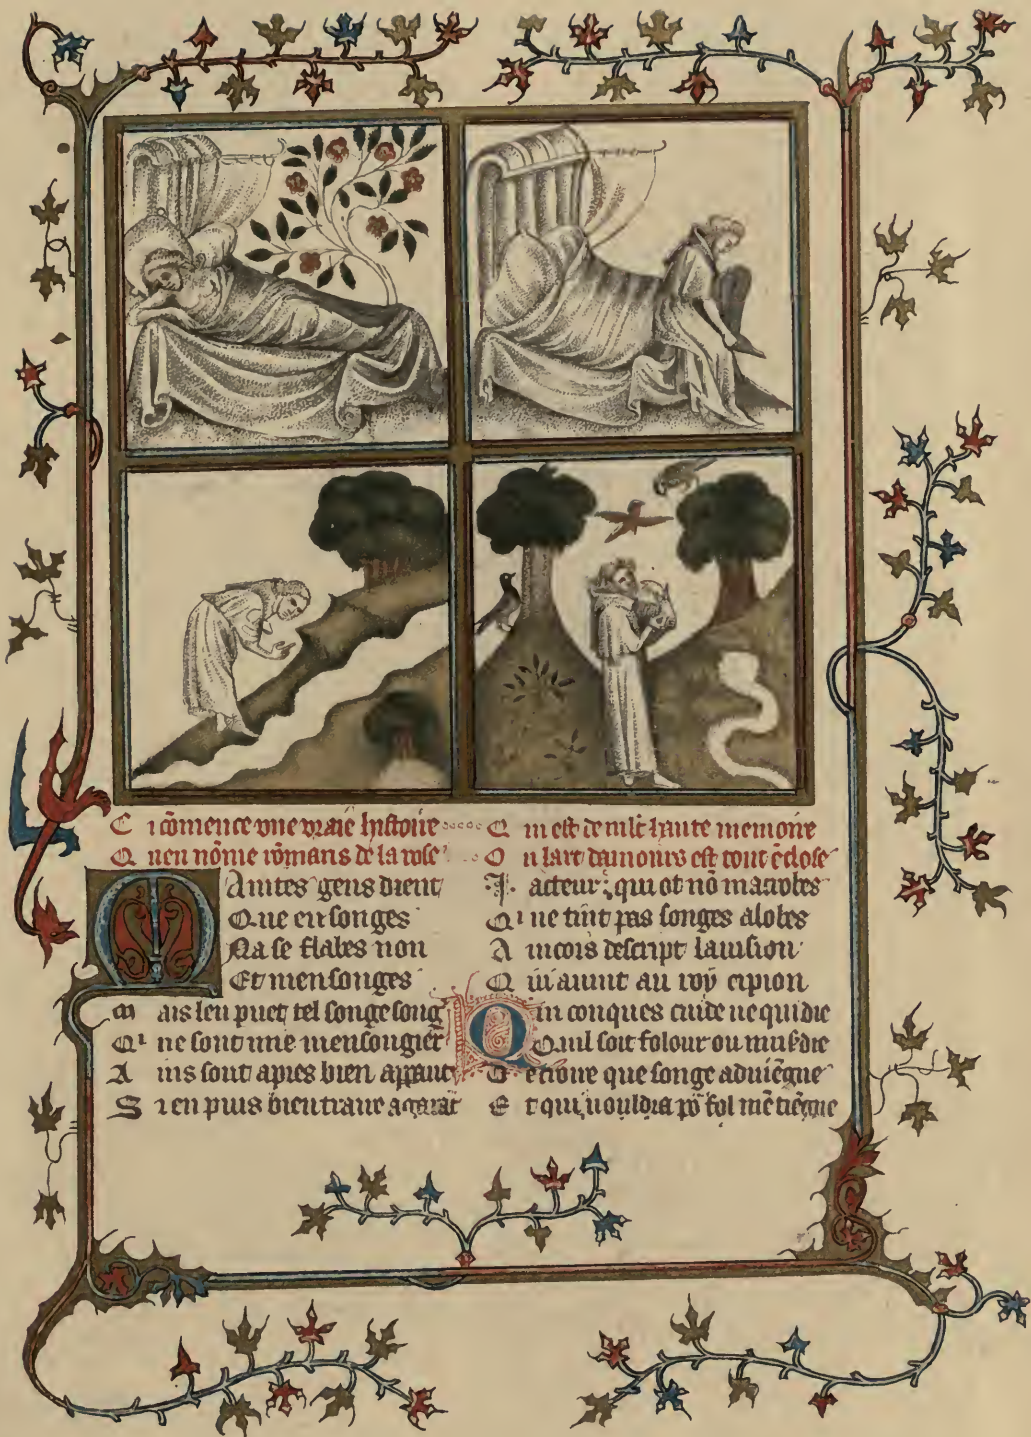 Ci cōmence vne vraie hystoire
Quen nōme rōmans de la rose
Maintes gens dient
Que en songes
Na se flabes non
Et mensonges
mais len puet tel songe song
Qⁱ ne sont mie mensongier
Ains sont apres bien apparāt
Si en puis bien traire a garāt
Cui est de mlt haute memoire
Ou lart damours est tout ēclose
acteur qui ot nō macrobes
Qⁱ ne tint pas songes a lobes
Aincois descript lauision
Qui auint au roy cipion
Quiconques cuide ne qui die
Quil soit folour ou musardie
De croire que songe aduiēgne
Et qui uouldra pō fol mē tiēgne